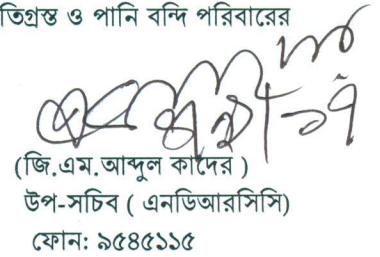 তিগ্রস্ত ও পানি বন্দি পরিবারের
(জি.এম.আব্দুল কাদের )
উপ-সচিব ( এনডিআরসিসি)
ফোন: ৯৫৪৫১১৫